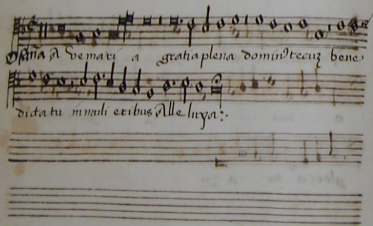 Osaña A ve mari a gratia plena dominꝰ tecuz bene
dicta tu in muli eribus Alle luya:.